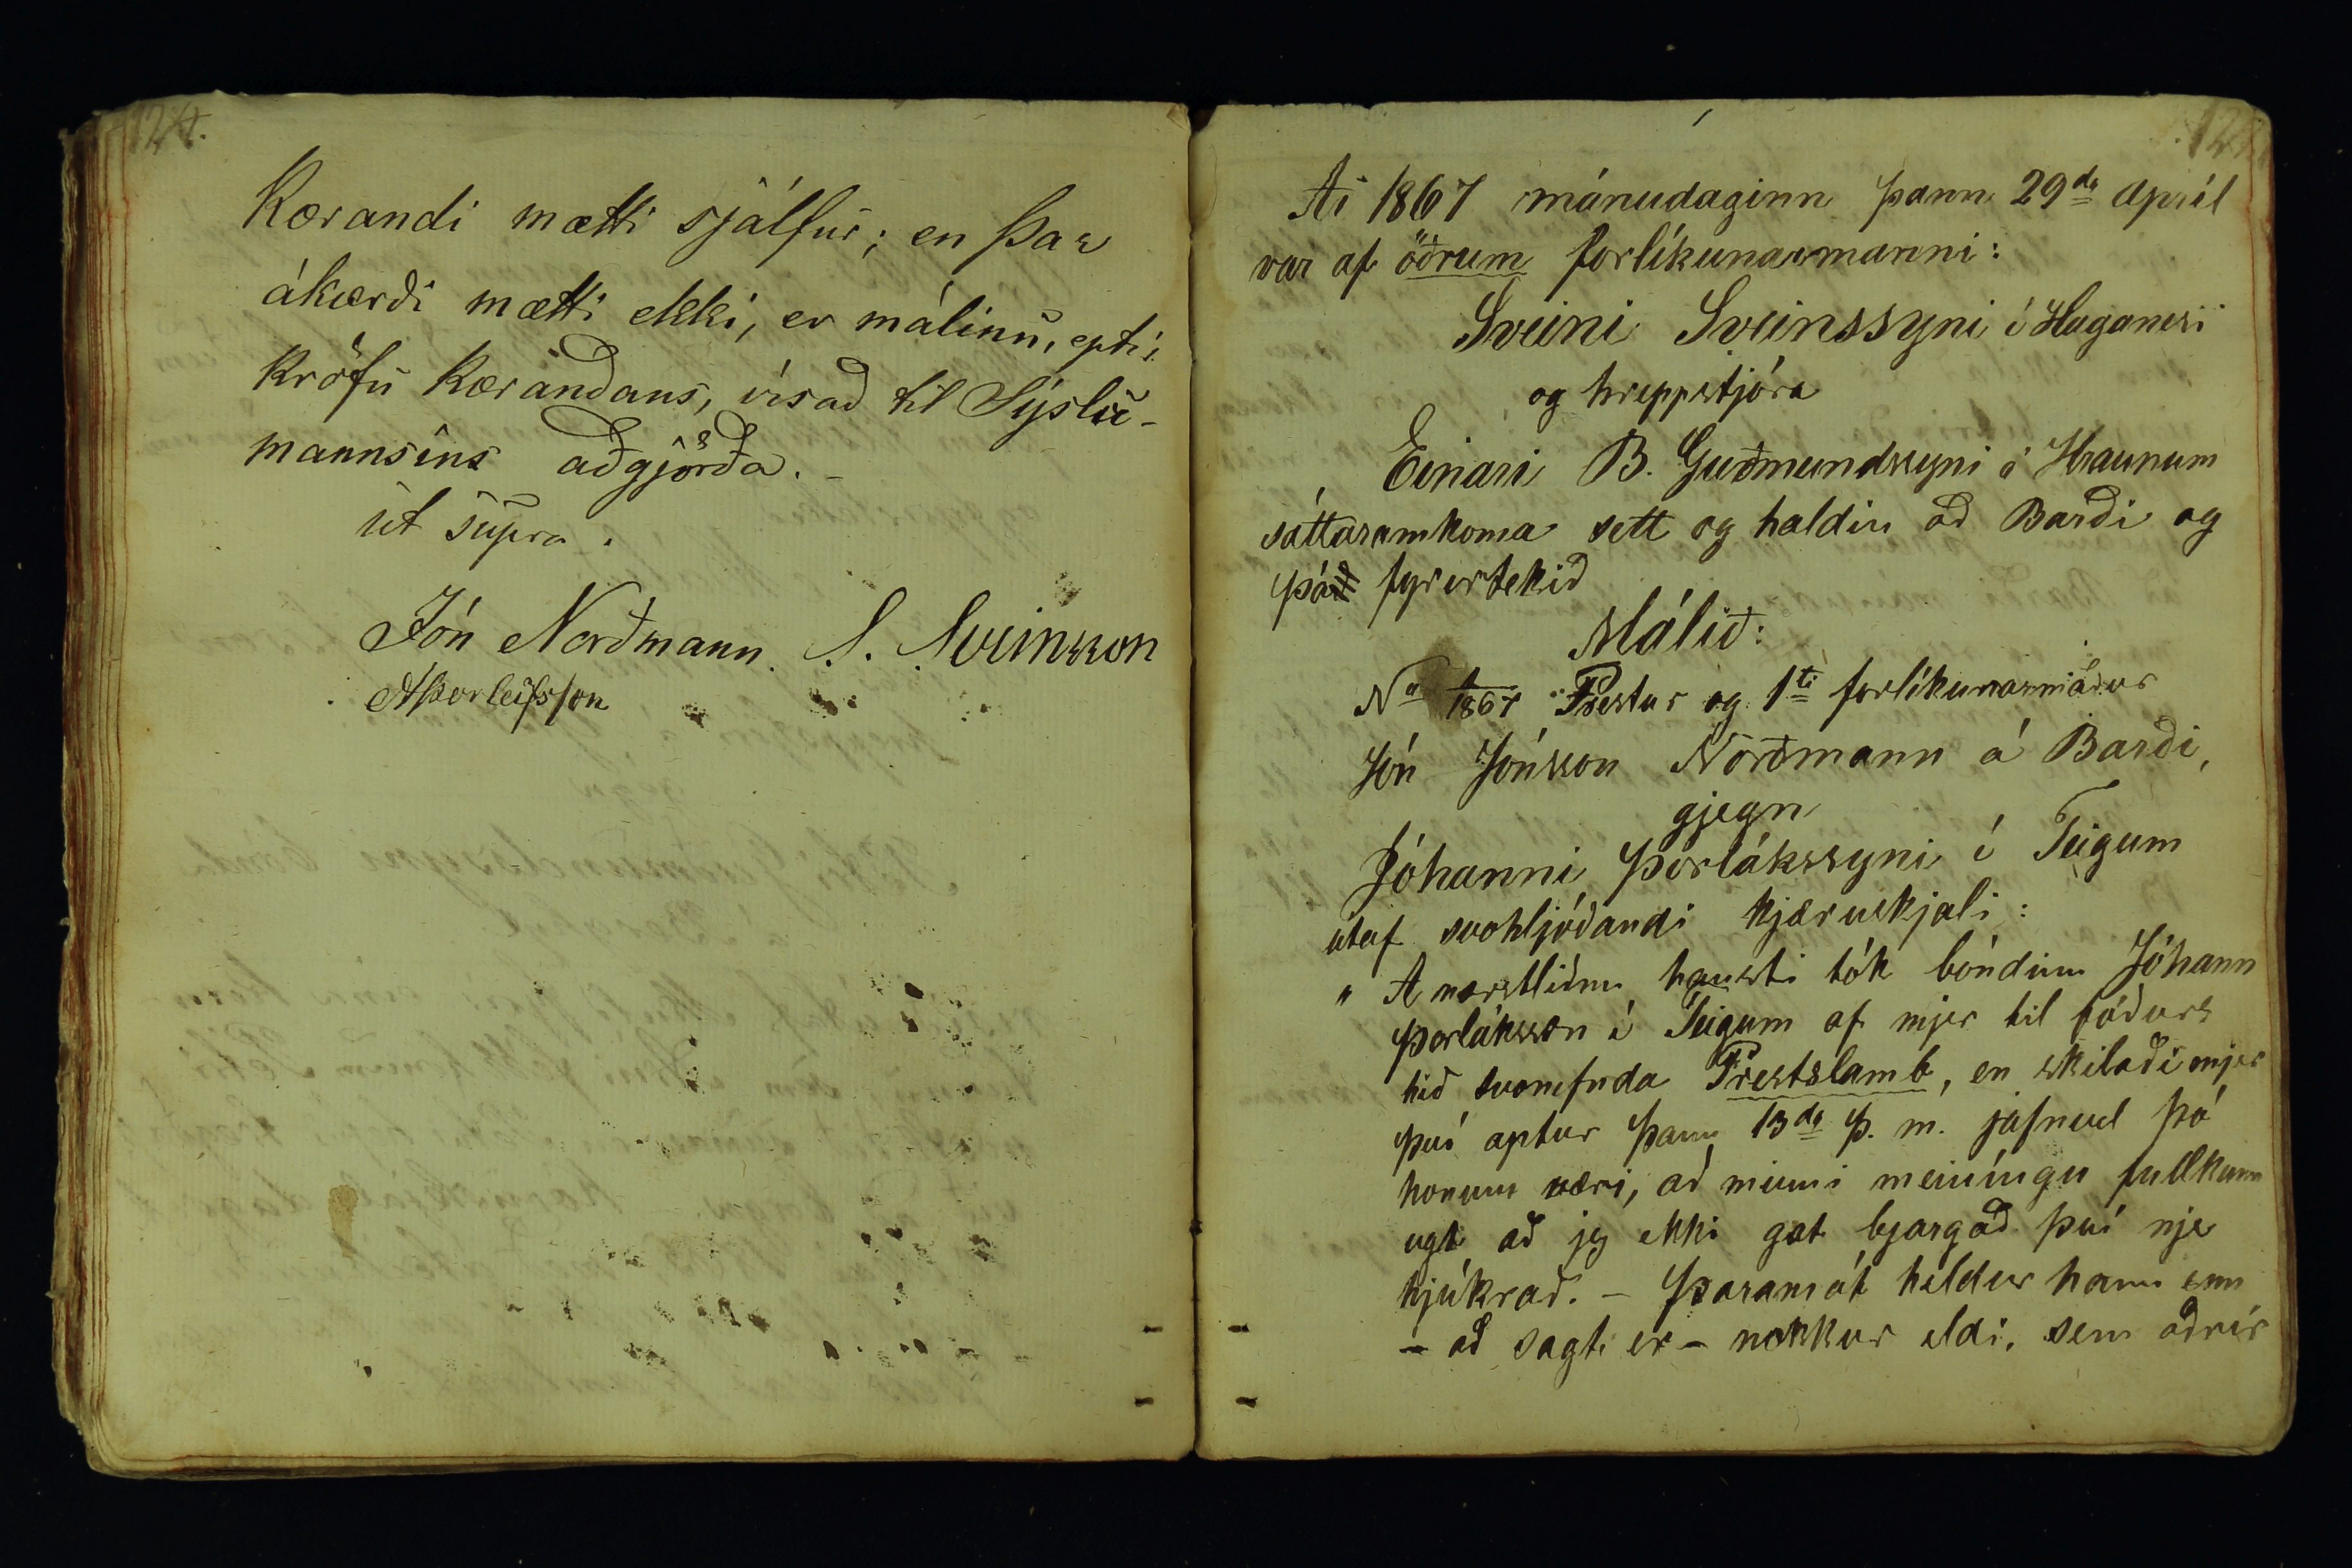 124.
Kærandi mætti sjálfur; en þar
ákærði mætti ekki, er málinu, eptir
kröfu kærandans, vísað til Sýslu-
mannsins aðgjörða. -
út supra.
Jón Norðmann. S. Sveinsson
AÞorleifsson
Ár 1867 mánudaginn þann 29da Apríl
var af öðrum forlíkunarmanni:
Sveini Sveinssyni í Haganesi
og hreppstjóra
Einari B. Guðmundssyni á Hraunum
sáttasamkoma sett og haldin að Barði og
þá fyrirtekið
Málið:
No 1/1867 Prestur og 1ti forlíkunarmaður
Jón Jónsson Norðmann á Barði,
gjegn
Jóhanni Þorlákssyni í Teigum
útaf svohljóðandi kjæruskjali:
" A næstliðnu hausti tók bóndinn Jóhann
Þorláksson í Teigum af mjer til fóðurs
hið svonefnda Prestslamb, en skilaði mjer
því aptur þann 13da þ. m. jafnvel þó
honum væri, að minni meiníngu fullkunn
ugt að jeg ekki gat bjargað því nje
hjúkrað. - Þaramót heldur hann enn
- að sagt er - nokkur eldi, sem aðrir